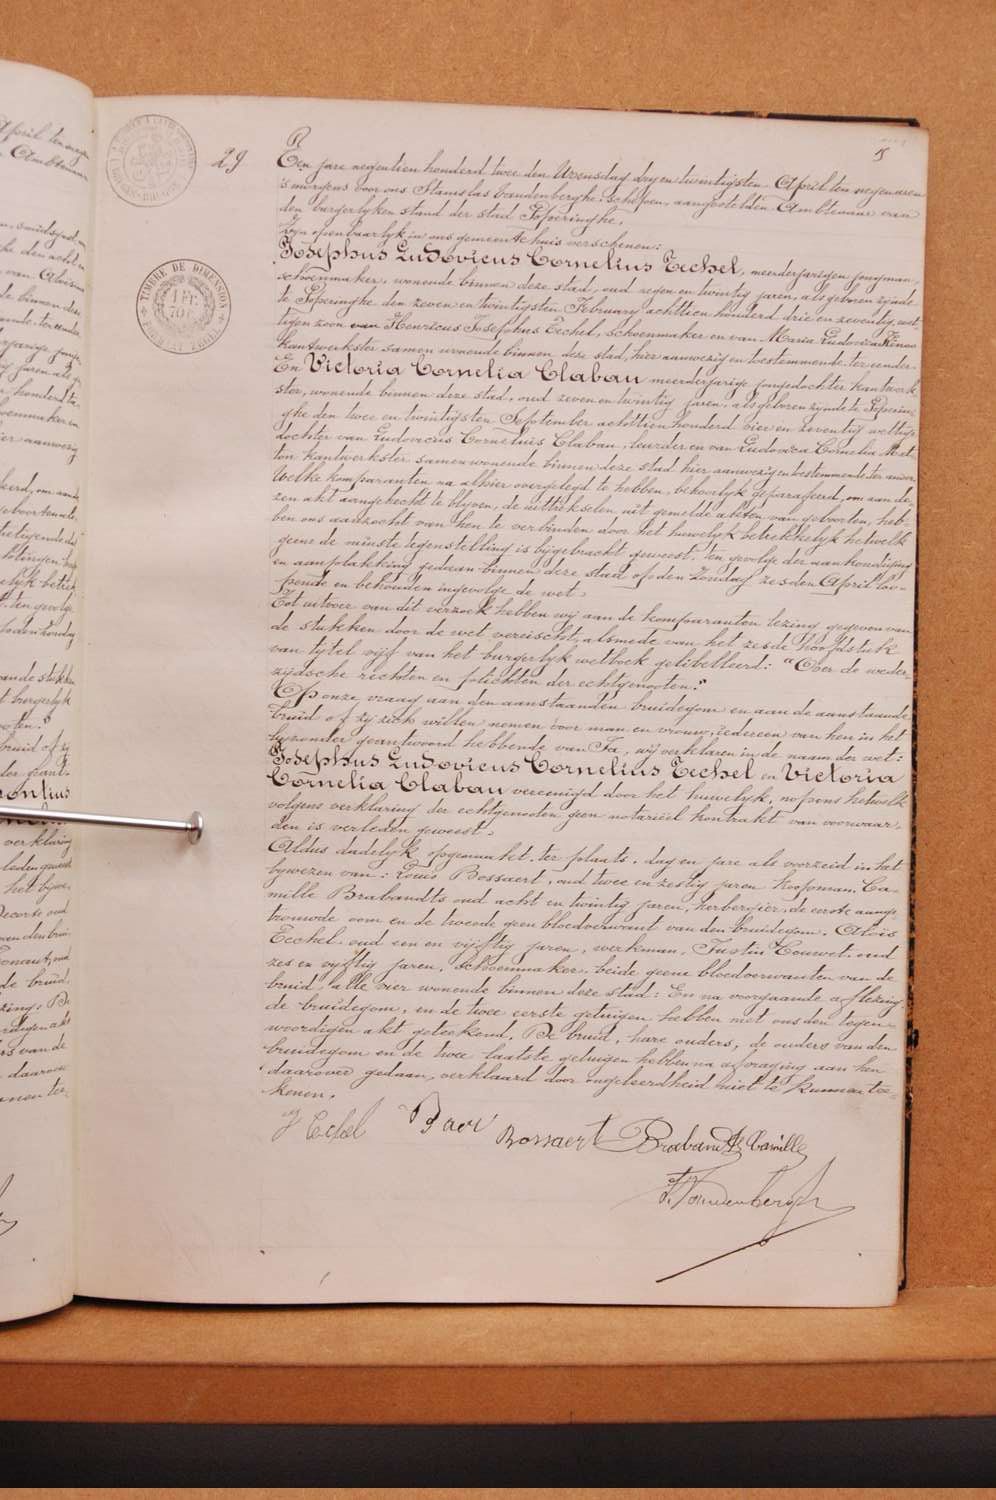 29
15
Een jare negentien honderd twee den Woensdag dry en twintigsten April ten negen uren
's morgens voor ons Stanislas Vandenberghe, schepen, aangestelden Ambtenaar van
den burgerlyken stand der stad Poperinghe,
zyn openbaarlyk in ons gemeentehuis verschenen:
Josephus Ludovicus Cornelius Techel, meerderjarigen jongman,
schoenmaker, wonende binnen deze stad, oud negen en twintig jaren, als geboren zynde
te Poperinghe den zeven en twintigsten February achttien honderd drie en zeventig, wet-
tigen zoon van Henricus Josephus Techel, schoenmaker en van Maria Ludovica
kantwerkster samen wonende binnen deze stad, hier aanwezig en toestemmende, ter eender
En Victoria Cornelia Clabau meerderjarige jongedochter kantwerk-
ster, wonende binnen deze stad, oud zeven en twintig jaren, als geboren zynde te Poperin-
ghe den twee en twintigsten September achttien honderd vier en zeventig wettige
dochter van Ludovicus Cornelius Clabau, leurder en van Ludovica Cornelia
kantwerkster samen wonende binnen deze stad hier aanwezig en toestemmende ter ander.
Welke komparanten na alhier overgelegd te hebben, behoorlyk geparaffeerd, om aan de-
zen akt aangehecht te blyven, de uittrekselen uit gemelde akten van geboorten, heb-
ben ons aanzocht van hen te verbinden door het huwelyk betrekkelyk hetwelk
geene de minste tegenstelling is bygebracht geweest, ten gevolge der aankondiging
en aanplakking gedaan binnen deze stad op den Zondag zesden April loo-
pende en behouden ingevolge de wet.
Tot uitvoer van dit verzoek hebben wy aan de komparanten lezing gegeven van
de stukken door de wet vereischt, alsmede van het zesde hoofdstuk
van tytel vyf van het burgerlyk wetboek gelibelleerd: "Over de weder-
zydsche rechten en plichten der echtgenooten."
Op onze vraag aan den aanstaanden bruidegom en aan de aanstaande
bruid of zy zich willen nemen voor man en vrouw, iedereen van hen in het
byzonder geantwoord hebbende van Ja, wy verklaren in de naam der wet:
Josephus Ludovicus Cornelius Techel en Victoria
Cornelia Clabau vereenigd door het huwelyk, nopens hetwelk
volgens verklaring der echtgenooten geen notariëel kontrakt van voorwaar-
den is verleden geweest.
Aldus dadelyk opgemaakt, ter plaats, dag en jare als voorzeid in het
bywezen van: Louis Bossaert, oud twee en zestig jaren koopman, Ca-
mille Brabandts oud acht en twintig jaren, herbergier, de eerste aange-
trouwde oom en de tweede geen bloedverwant van den bruidegom. Aloïs
Techel, oud een en vyftig jaren, werkman, Justin Couwet, oud
zes en vyftig jaren, schoenmaker, beide geene bloedverwanten van de
bruid, alle vier wonende binnen deze stad: En na voorgaande aflezing
de bruidegom, en de twee eerste getuigen hebben met ons den tegen-
woordigen akt geteekend. De bruid, hare ouders, de ouders van den
bruidegom en de twee laatste getuigen hebben na afvraging aan hen
daarover gedaan, verklaard door ongeleerdheid niet te kunnen tee-
kenen.
J Techel
Bossaert
Brabandts Camille
S. Vandenberghe
TIMBRE DE DIMENSION
1 FR.